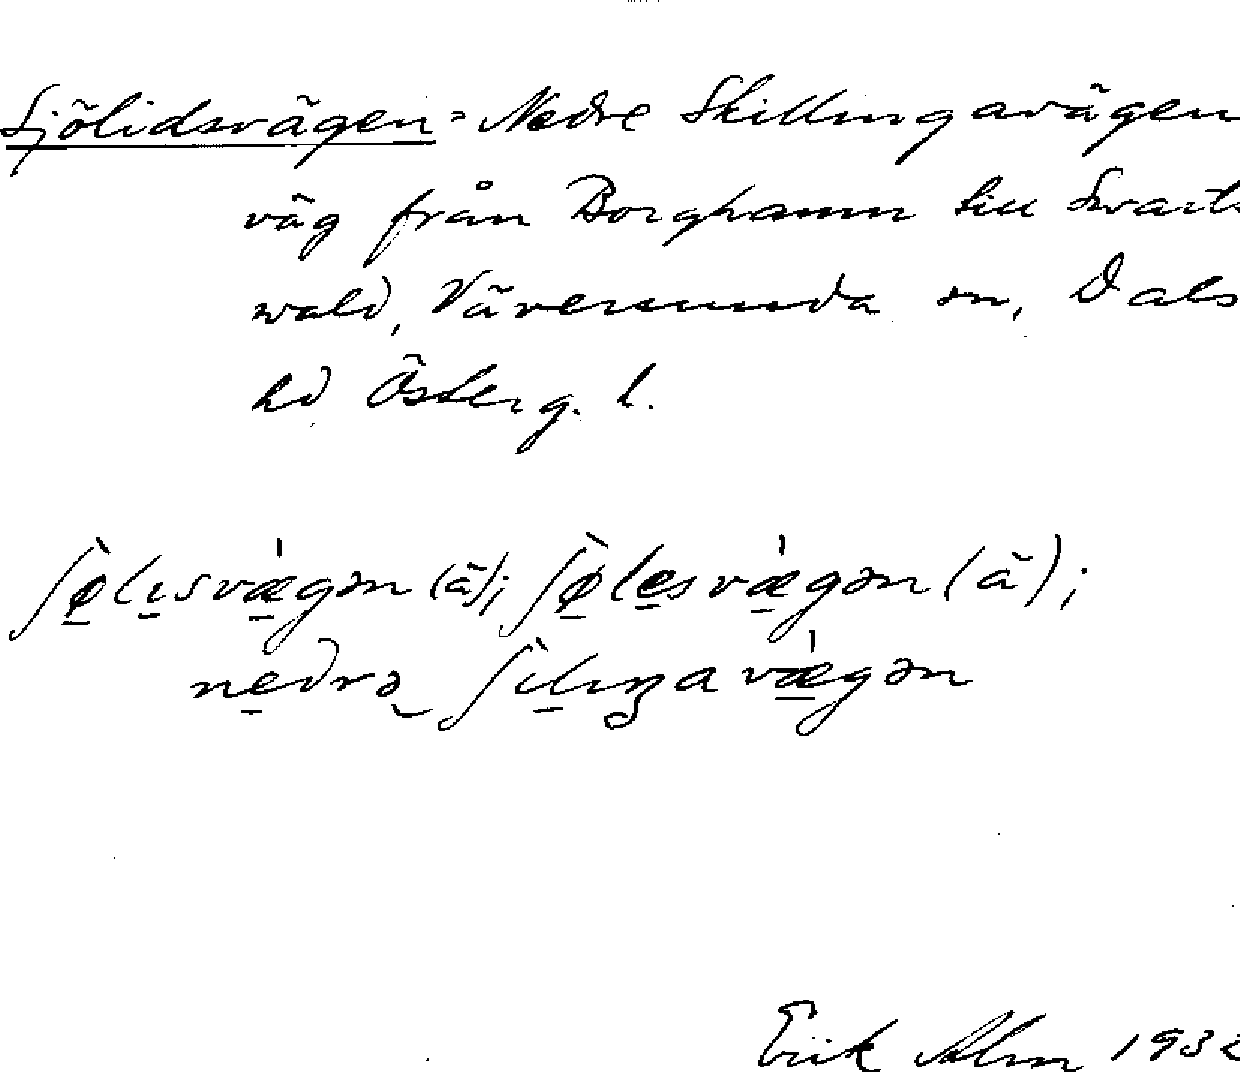 Sjölidsvägen = Nedre Skillingavägen
väg från Borghamn till Svart-
wald, Väversunda sn, Dals
hd Österg. l.
ʃø̀lɪsvæ̍gən (ä); ʃø̀lesvæ̍gən (ä);
nedrə ʃìlɪŋavæ̍gən
Erik Alm 1932